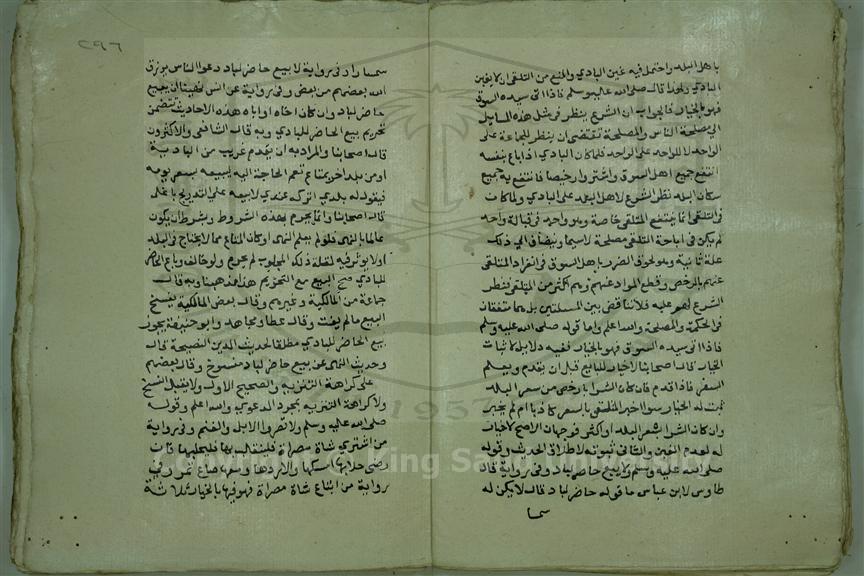 باهل البلد واحتمل فيه غبن البادي والمنع من التلقي ان لا يغبن
البادي ولهذا قال صلى الله عليه وسلم فاذا اتى سيده السوق
فهو بالخيار فالجواب ان الشرع ينظر في مثل هذه المسايل
الى مصلحة الناس والمصلحة تقتضي ان ينظر للجماعة على
الواحد لا للواحد على الواحد فلما كان البادي اذا باع بنفسه
انتفع جميع اهل السوق واشتروا رخيصا فانتفع به جميع
سكان البلد نظر الشرع لاهل البلد على البادي ولما كان
في التلقي انما ينتفع المتلقي خاصة وهو واحد في قبالة واحد
لم يكن في اباحة التلقي مصلحة لا سيما وينضاف الى ذلك
علة ثانية وهو لحوق الضرر باهل السوق في انفراد المتلقي
عنهم بالرخص وقطع المواد عنهم وهم اكثر من المتلقي فنظر
الشرع لهم عليه فلا تناقض بين المسئلتين بل هما متفقتان
في الحكمة والمصلحة والله اعلم واما قوله صلى الله عليه وسلم
فاذا اتى سيده السوق فهو بالخيار ففيه دلايل لاثبات
الخيار قال اصحابنا لا خيار للبايع قبل ان يقدم ويعلم
السعر فاذا قدم فان كان الشرا بارخص من سعر البلد
ثبت له الخيار سوا اخبر المتلقي بالسعر كاذبا ام لم يخبر
وان كان الشرا بسعر البلد او اكثر فوجهان الاصح لا خيار
له لعدم الغبن والثاني ثبوته لاطلاق الحديث وقوله
صلى الله عليه وسلم ولا يبيع حاضر لباد وفي رواية قال
طاوس لابن عباس ما قوله حاضر لباد قال لا يكن له
سمسا
٢٩٦
سمسارا وفي رواية لا يبيع حاضر لباد دعوا الناس يرزق
الله بعضهم من بعض وفي رواية عن انس نهينا ان يبيع
حاضر لباد وان كان اخاه او اباه هذه الاحاديث تتضمن
تحريم بيع الحاضر للبادي وبه قال الشافعي والاكثرون
قال اصحابنا والمراد به ان يقدم غريب من البادية
او من بلد اخر بمتاع تعم الحاجة اليه ليبيعه بسعر يومه
فيقول له بلدي اتركه عندي لابيعه على التدريج باعلى
قال اصحابنا وانما يحرم بهذه الشروط وبشرط ان يكون
عالما بالنهي فلو لم يعلم النهي او كان المتاع مما لا يحتاج في البلد
او لا يوثر فيه لقلة ذلك المجلوب لم يحرم ولو خالف وباع الحاضر
للبادي صح البيع مع التحريم هذا مذهبنا وبه قال
جماعة من المالكية وغيرهم وقال بعض المالكية يفسخ
البيع ما لم يفت وقال عطا ومجاهد وابو حنيفة يجوز
بيع الحاضر للبادي مطلقا لحديث الدين النصيحة قال
وحديث النهي عن بيع حاضر لباد منسوخ وقال بعضهم
على كراهة التنزيه والصحيح الاول ولا يقبل النسخ
ولا كراهة التنزيه بمجرد الدعوى والله اعلم وقوله
صلى الله عليه وسلم ولا تصروا الابل والغنم وفي رواية
من اشترى شاة مصراة فلينقلب بها فليحلبها فان
رضي حلابها امسكها والا ردها ومعها صاع تمر وفي
رواية من ابتاع شاة مصراة فهو فيها بالخيار ثلاثة
1957
King Sa